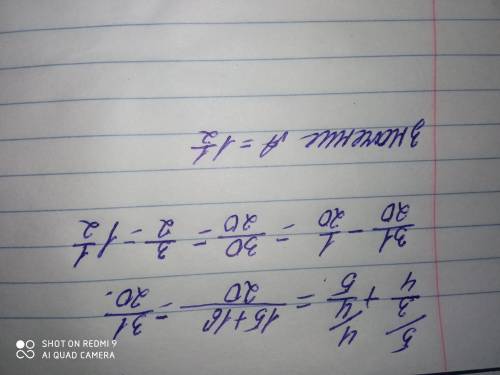 5/ 3/4 + 4/ 4/5 = 15+16/20 = 31/20.
31/20 - 1/20 = 30/20 = 3/2 = 1 1/2
значение A = 1 1/2
SHOT ON REDMI 9
AI QUAD CAMERA